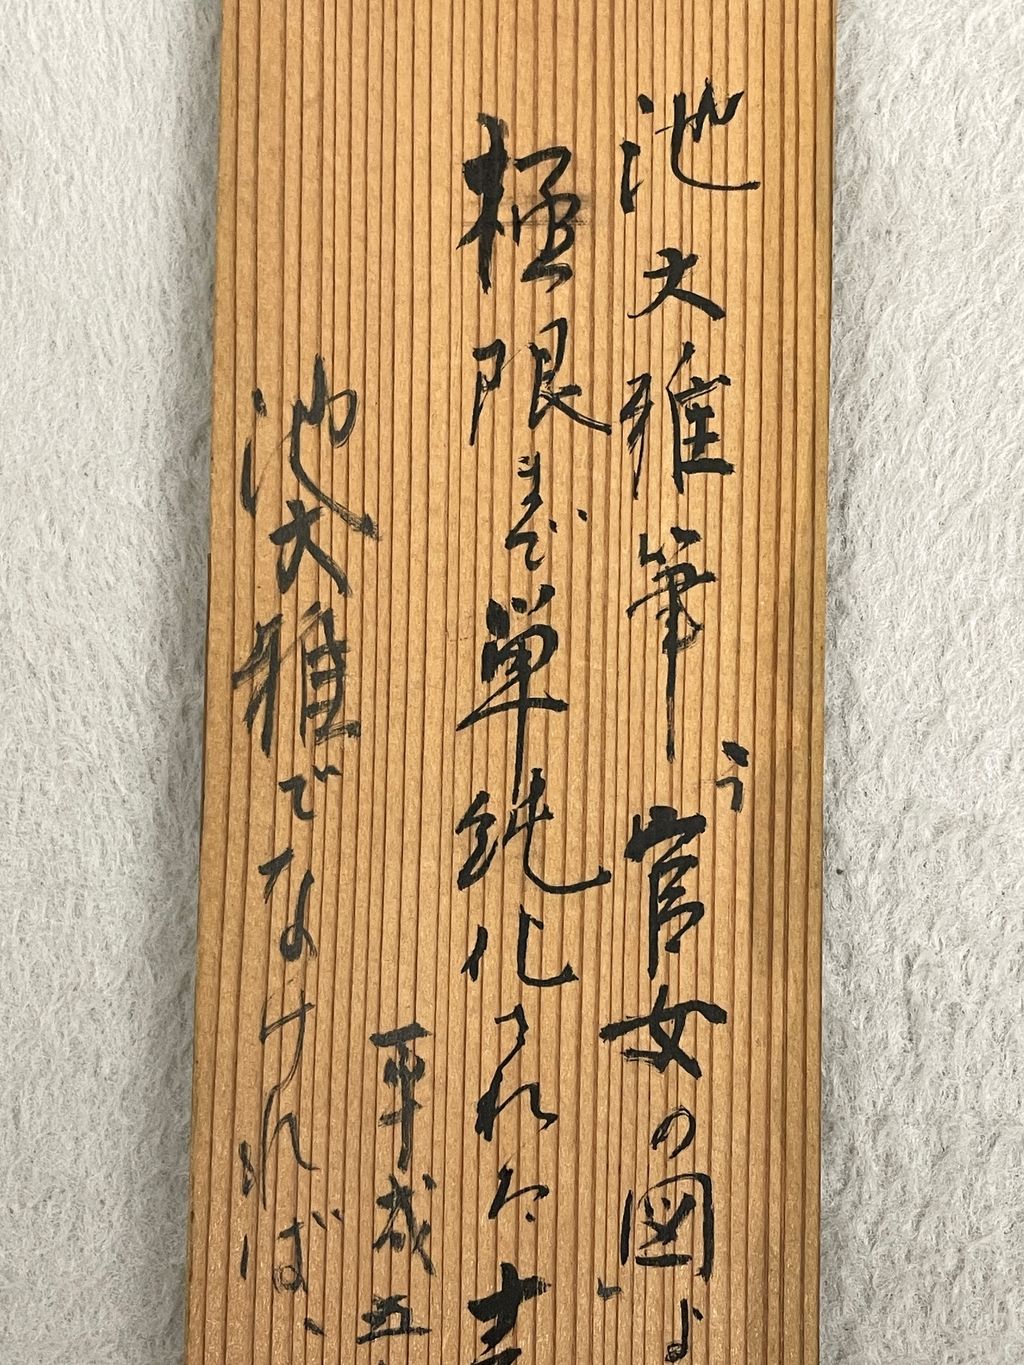 池大雅筆「官女の図」
極限まで単純化された
池大雅でなければ、
平成五